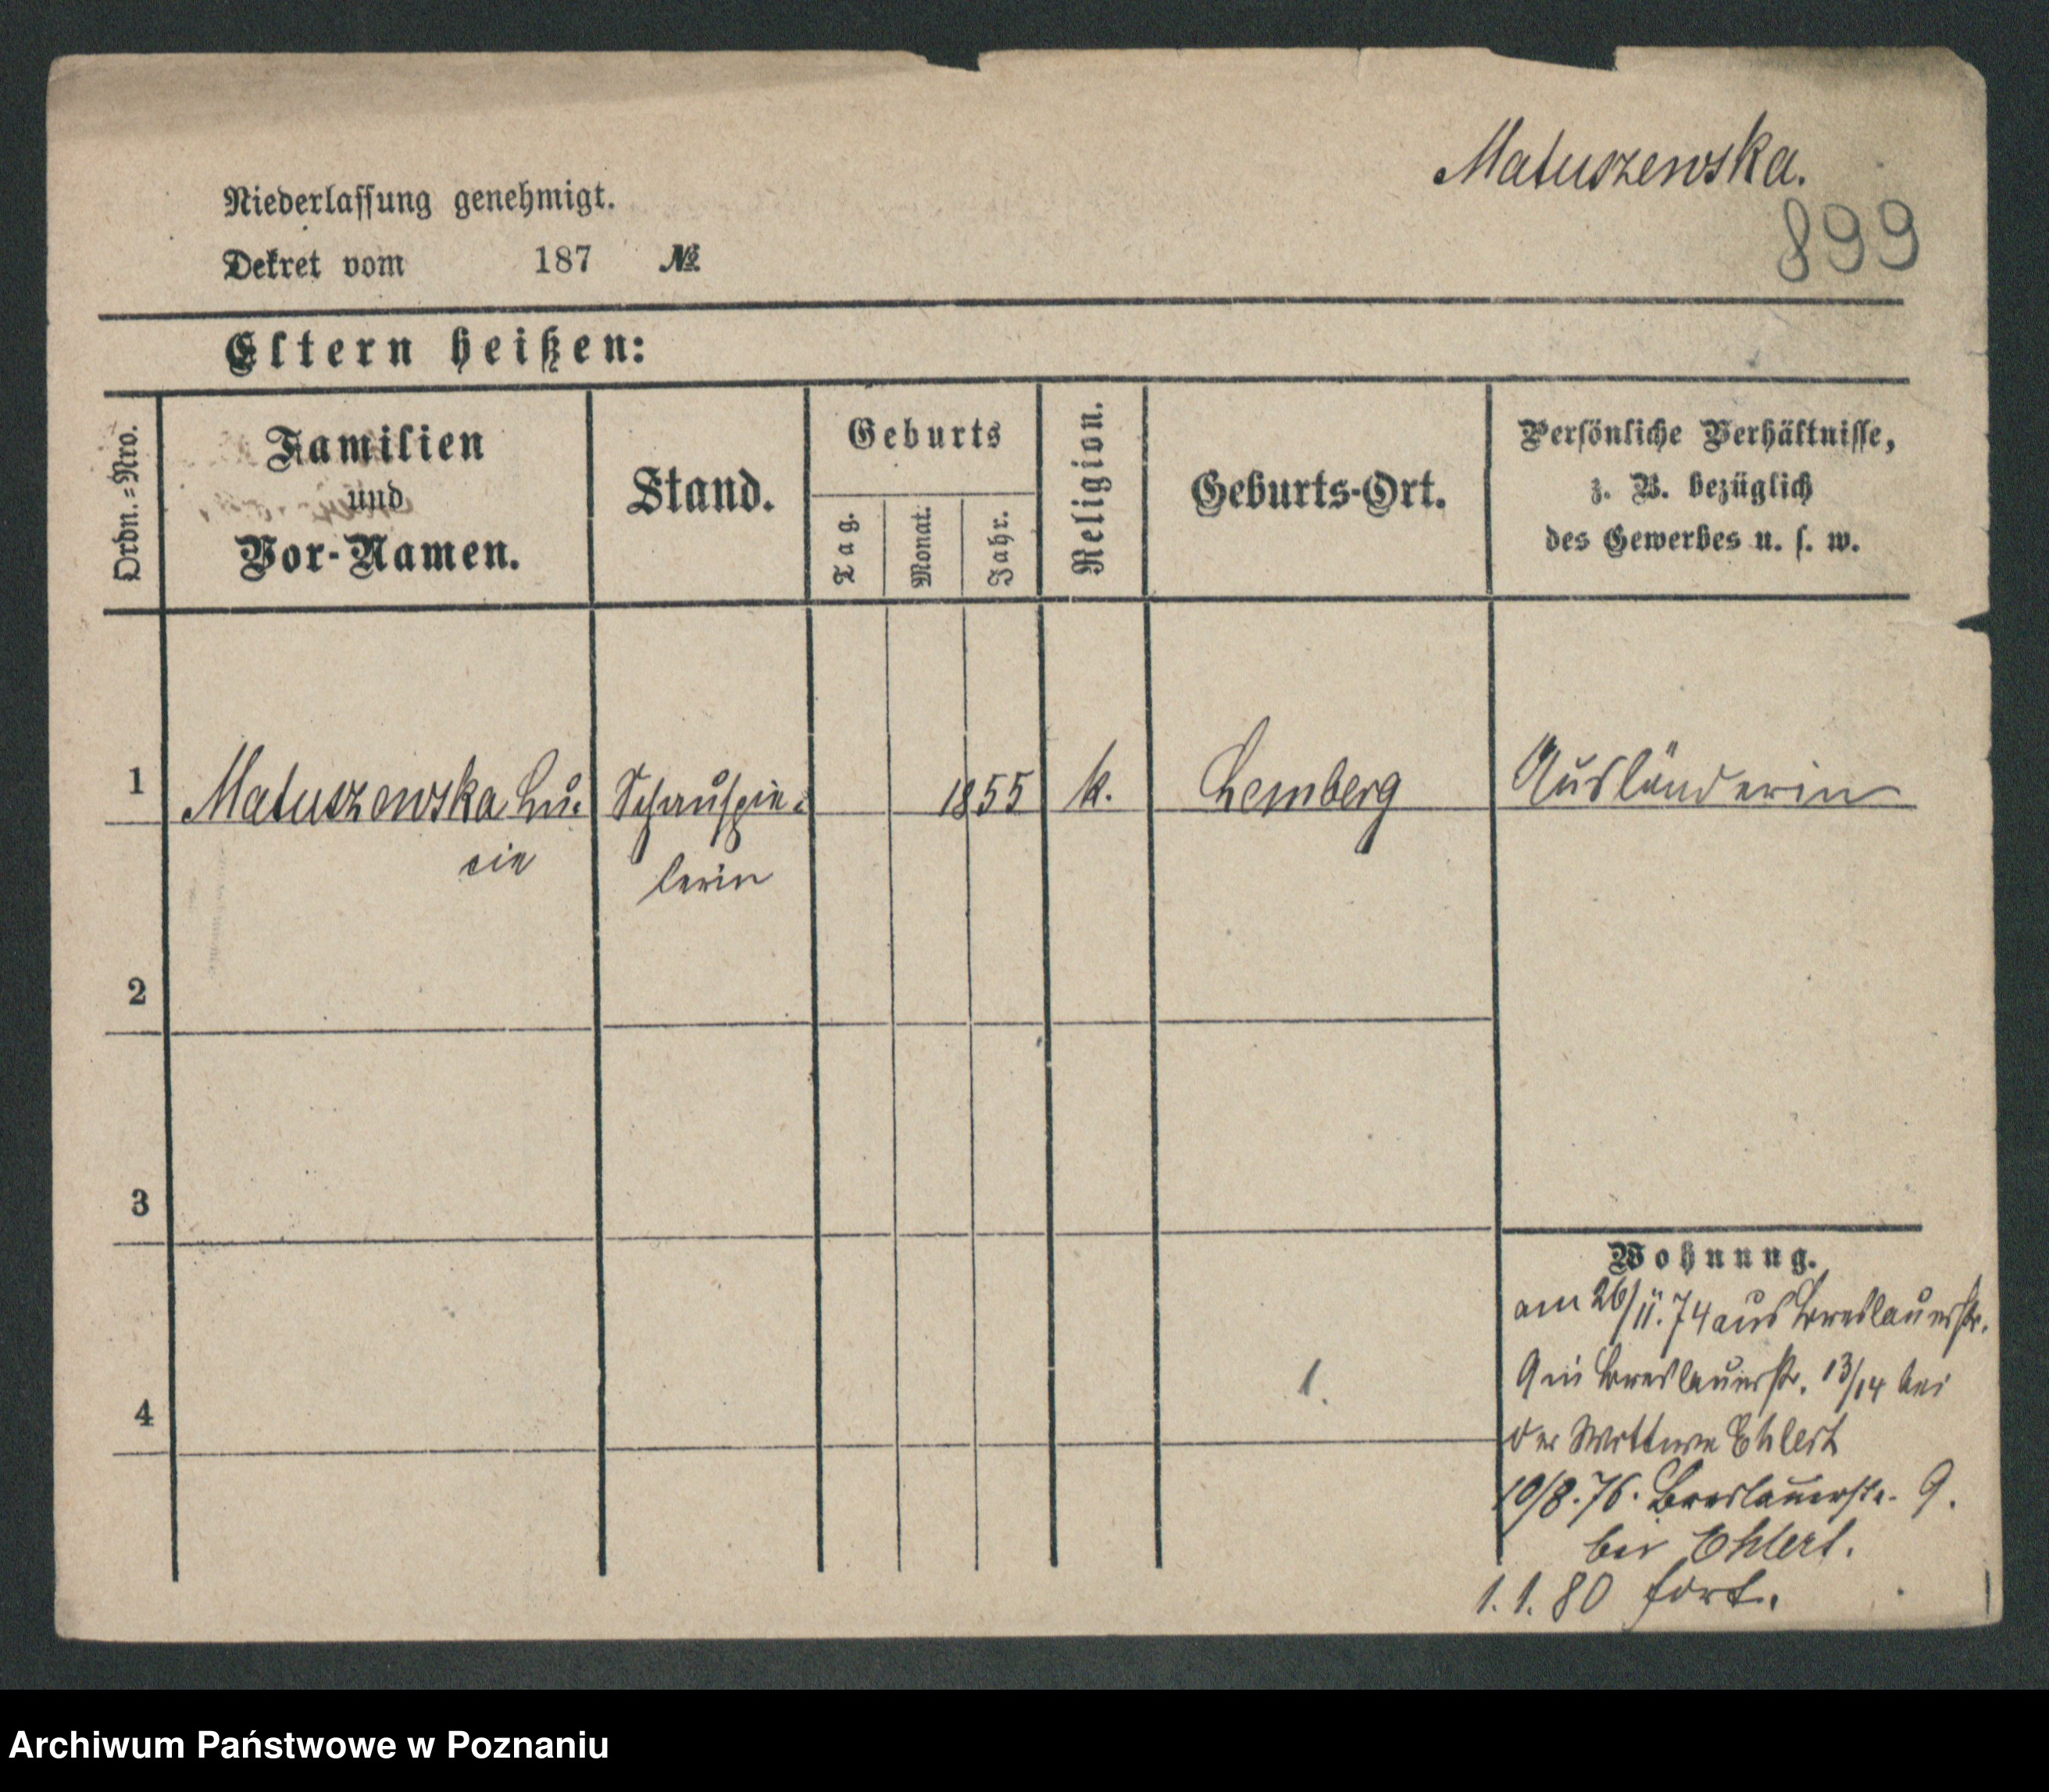 Matuszewska.
899
Niederlassung genehmigt.
Dekret vom 187 №
Eltern heißen:
Ordn.=Nro.
Familien
und
Vor-Namen.
Stand.
Geburts
Tag.
Monat.
Jahr.
Religion.
Geburts-Ort.
Persönliche Verhältnisse,
z. B. bezüglich
des Gewerbes u. s. w.
1 Matuszewska Lu= Schauspie= 1855 k. Lemberg Ausländerin
cie lerin
2
3
4
1.
Wohnung.
am 26/11.74 aus Breslauerstr.
9 in Breslauerstr. 13/14 bei
der Wittwe Ehlert
10/8.76. Breslauerstr. 9.
bei Ehlert.
1.1.80 fort.
Archiwum Państwowe w Poznaniu